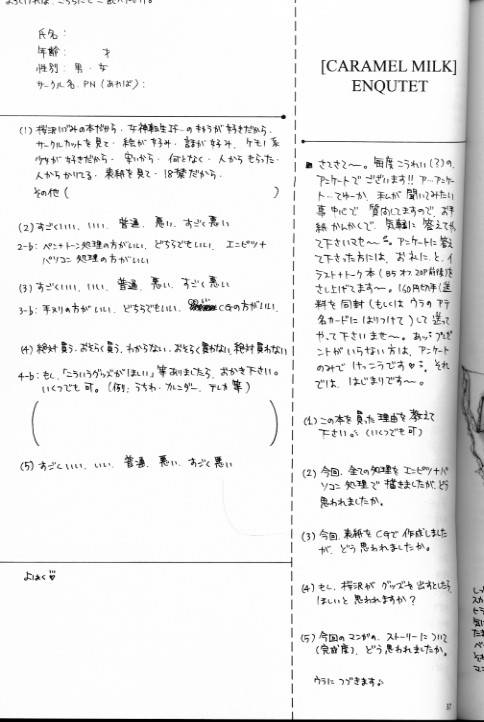 氏名：
年齢：　　　才
性別：男・女
サークル名.PN(あれば)：
(1) 桜沢いづみの本だから・女神転生if…のキョウが好きだから・
サークルカットを見て・絵が好み・話が好み・ケモノ系
少女が好きだから・安いから・何となく・人からもらった・
人からかりてる・表紙を見て・18禁だから・
その他(　　　　)
(2) すごくいい、いい、普通、悪い、すごく悪い
2-b: ペン+トーン処理の方がいい、どちらでもいい、エンピツ+
パソコン処理の方がいい
(3) すごくいい、いい、普通、悪い、すごく悪い
3-b: 手ヌリの方がいい、どちらでもいい、CGの方がいい、
(4) 絶対買う、おそらく買う、わからない、おそらく買わない、絶対買わない
4-b: もし、「こういうグッズがほしい」等ありましたら、おかき下さい。
いくつでも可。(例：うちわ・カレンダー、テレカ等)
(5) すごくいい、いい、普通、悪い、すごく悪い
よはく♡
[CARAMEL MILK]
ENQUTET
■ さてさて〜。毎度こうれい(?)の、
アンケートでございます!! ア…アンケー
ト…てゆーか、私が聞いてみたい
事中心で、質問してますので、お手
紙かんかくで、気軽に答えてや
って下さいませ〜。アンケートに答え
て下さった方には、お礼にと、イ
ラスト+トーク本(B5オフ、20P前後)を
さし上げてます〜。160円切手(送
料を同封(もしくは ウラのアテ
名カードにはりつけて)して送って
やって下さいませ〜。あっ、プレゼ
ントがいらない方は、アンケート
のみでけっこうです♡。それ
では、はじまりです〜。
(1) この本を買った理由を教えて
下さい。(いくつでも可)
(2) 今回、全ての処理をエンピツ+パ
ソコン処理で描きましたが、どう
思われましたか。
(3) 今回、表紙をCGで作成しました
が、どう思われましたか。
(4) もし、桜沢がグッズを出すとしたら、
ほしいと思われますか？
(5) 今回のマンガの、ストーリーについて
(完成度)、どう思われましたか。
ウラにつづきます♪
37